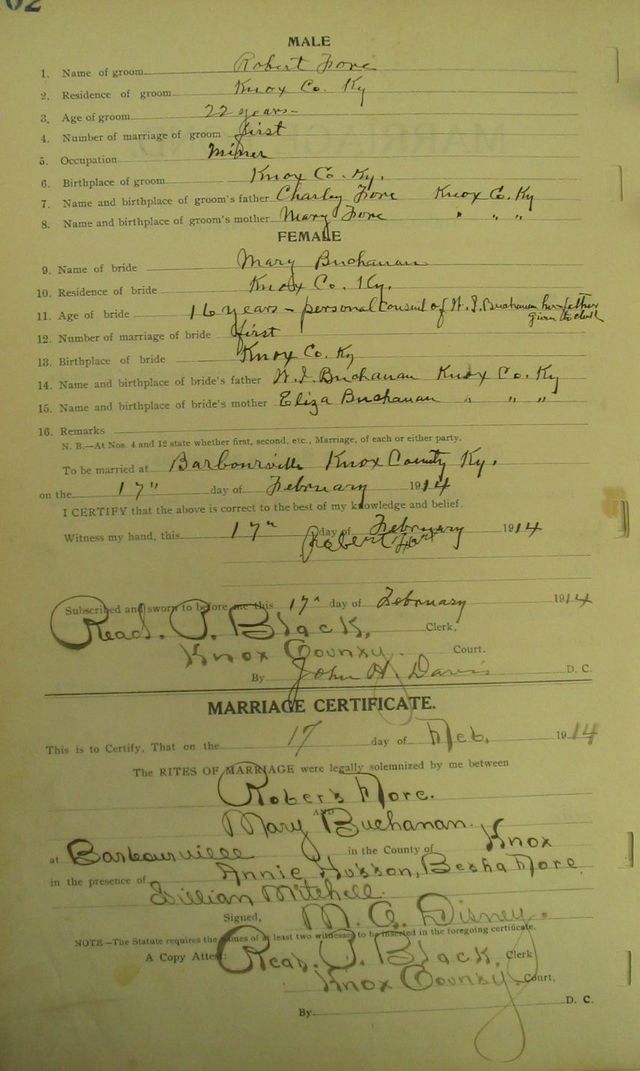 02
MALE
1. Name of groom Robert Fore
2. Residence of groom Knox Co. Ky
3. Age of groom 22 years
4. Number of marriage of groom first
5. Occupation Miner
6. Birthplace of groom Knox Co. Ky.
7. Name and birthplace of groom's father Charley Fore Knox Co. Ky
8. Name and birthplace of groom's mother Mary Fore " " "
FEMALE
9. Name of bride Mary Buchanan
10. Residence of bride Knox Co. Ky.
11. Age of bride 16 years - personal consent of W. J. Buchanan her father
given to clerk
12. Number of marriage of bride first
13. Birthplace of bride Knox Co. Ky
14. Name and birthplace of bride's father W. J. Buchanan Knox Co. Ky
15. Name and birthplace of bride's mother Eliza Buchanan " " "
16. Remarks
N. B.—At Nos. 4 and 12 state whether first, second, etc., Marriage, of each or either party.
To be married at Barbourville Knox County Ky.
on the 17" day of February 1914
I CERTIFY that the above is correct to the best of my knowledge and belief.
Witness my hand, this 17" day of February 1914
Robert Fore
Subscribed and sworn to before me this 17" day of February 1914
Read. P. Black, Clerk,
Knox County. Court.
By John H. Davis D. C.
MARRIAGE CERTIFICATE.
This is to Certify, That on the 17 day of Feb. 1914
The RITES OF MARRIAGE were legally solemnized by me between
Robert Fore.
AND
Mary Buchanan.
at Barbourville in the County of Knox
in the presence of Annie Hutson, Bertha Fore
Lillian Mitchell.
Signed, M. C. Disney.
NOTE—The Statute requires the names of at least two witnesses to be inserted in the foregoing certificate.
A Copy Attest: Read. P. Black, Clerk
Knox County Court,
By D. C.